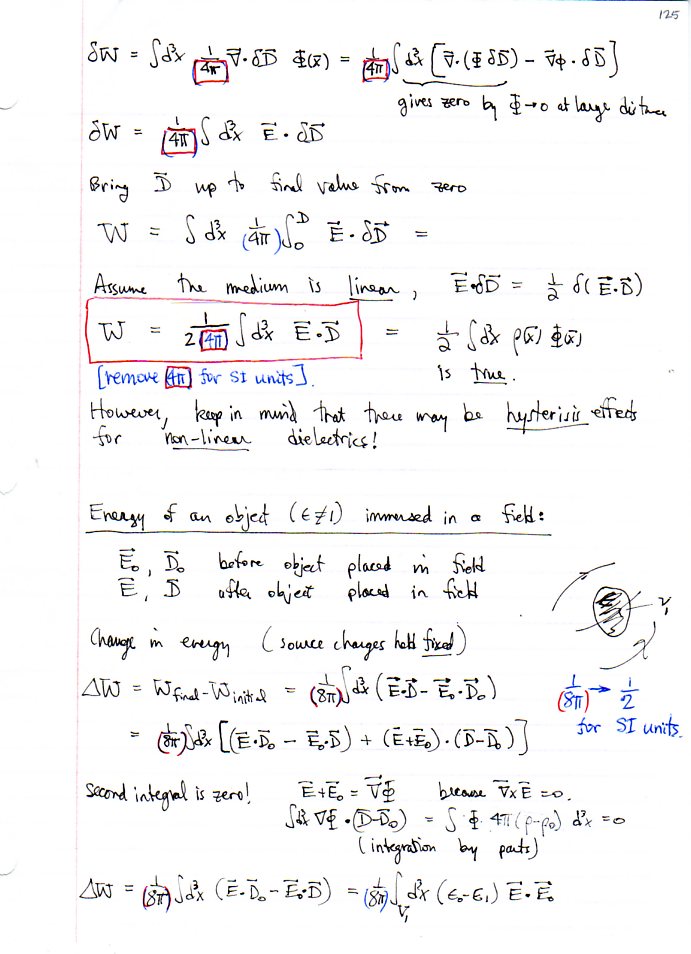 125
δW = ∫d³x 1/4π ∇⃗·δD⃗ Φ(x⃗) = 1/4π ∫d³x [∇⃗·(Φ δD⃗) − ∇⃗φ·δD⃗]
gives zero by Φ→0 at large distance
δW = 1/4π ∫ d³x E⃗·δD⃗
Bring D⃗ up to final value from zero
W = ∫ d³x (1/4π) ∫₀ᴰ E⃗·δD⃗ =
Assume the medium is linear, E⃗·δD⃗ = 1/2 δ(E⃗·D⃗)
W = 1/2(4π) ∫d³x E⃗·D⃗ = 1/2 ∫d³x ρ(x⃗) Φ(x⃗)
[remove 4π for SI units]. is true.
However, keep in mind that there may be hysterisis effects
for non-linear dielectrics!
Energy of an object (ε≠1) immersed in a field:
E⃗₀, D⃗₀ before object placed in field
E⃗, D⃗ after object placed in field
V₁
Change in energy (source charges held fixed)
ΔW = W_final − W_initial = (1/8π)∫d³x (E⃗·D⃗ − E⃗₀·D⃗₀)
(1/8π) → 1/2
for SI units.
= (1/8π)∫d³x [(E⃗·D⃗₀ − E⃗₀·D⃗) + (E⃗+E⃗₀)·(D⃗−D⃗₀)]
Second integral is zero! E⃗+E⃗₀ = ∇⃗Φ because ∇⃗×E⃗ = 0.
∫d³x ∇Φ·(D⃗−D⃗₀) = ∫ Φ 4π(ρ−ρ₀) d³x = 0
(integration by parts)
ΔW = (1/8π)∫d³x (E⃗·D⃗₀ − E⃗₀·D⃗) = (1/8π)∫_V₁ d³x (ε₀−ε₁) E⃗·E⃗₀